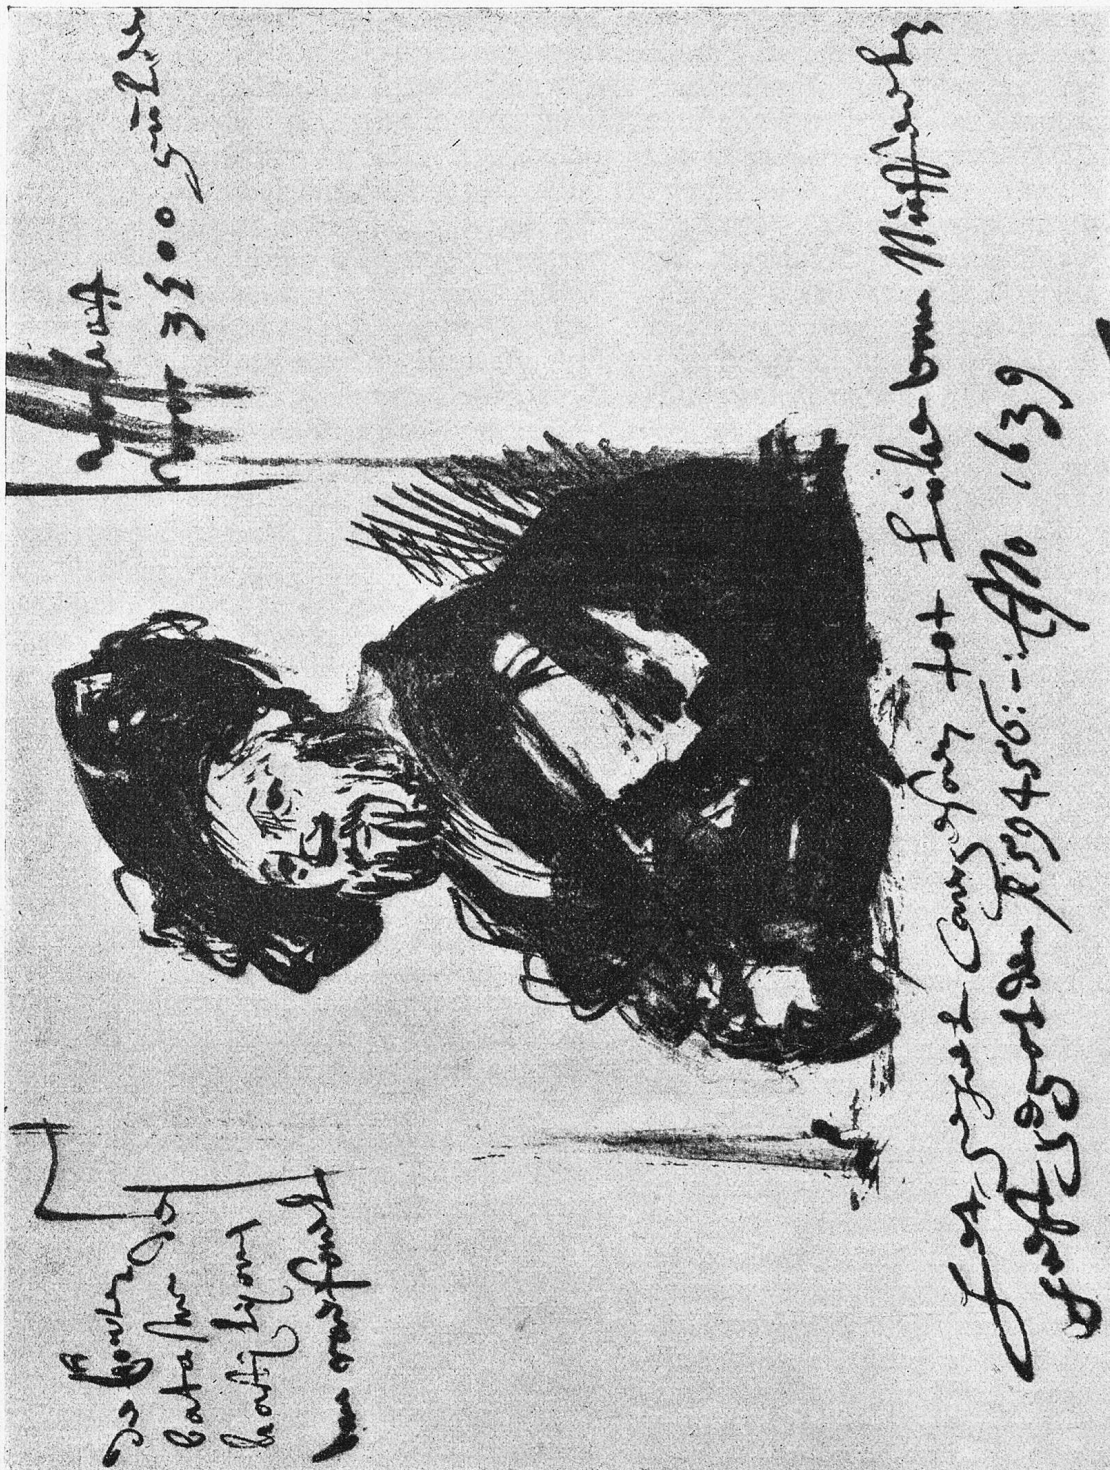 de Conte
batasar de
kastijlyone
van rafael
verkoft
voor 3500 gulden
het geheel Cargesoen tot Luke van Nuffeelen
heeft gegolden f59456:-: Ano 1639